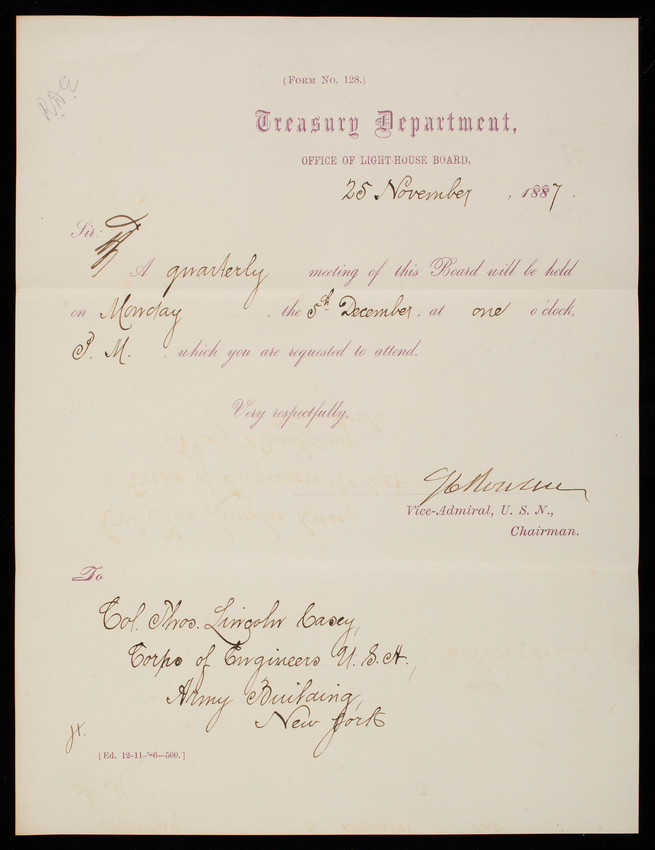 R.A.E.
(Form No. 128.)
Treasury Department,
OFFICE OF LIGHT-HOUSE BOARD,
25 November, 1887.
Sir:
A quarterly meeting of this Board will be held
on Monday, the 5th December, at one o'clock,
P. M., which you are requested to attend.
Very respectfully,
Vice-Admiral, U. S. N.,
Chairman.
To
Col. Thos. Lincoln Casey,
Corps of Engineers U. S. A.,
Army Building,
New York
[Ed. 12-11-'86—500.]